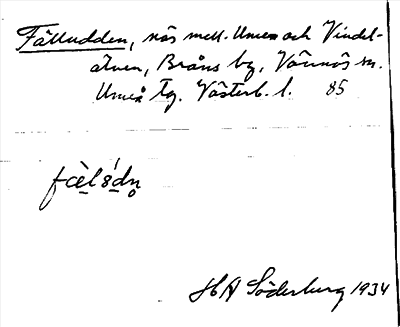 Fälludden, näs mell. Umeo och Vindel-
älven, Bråns by, Vännäs sn.
Umeå tg. Västerb. l. 85
HA Söderberg 1934